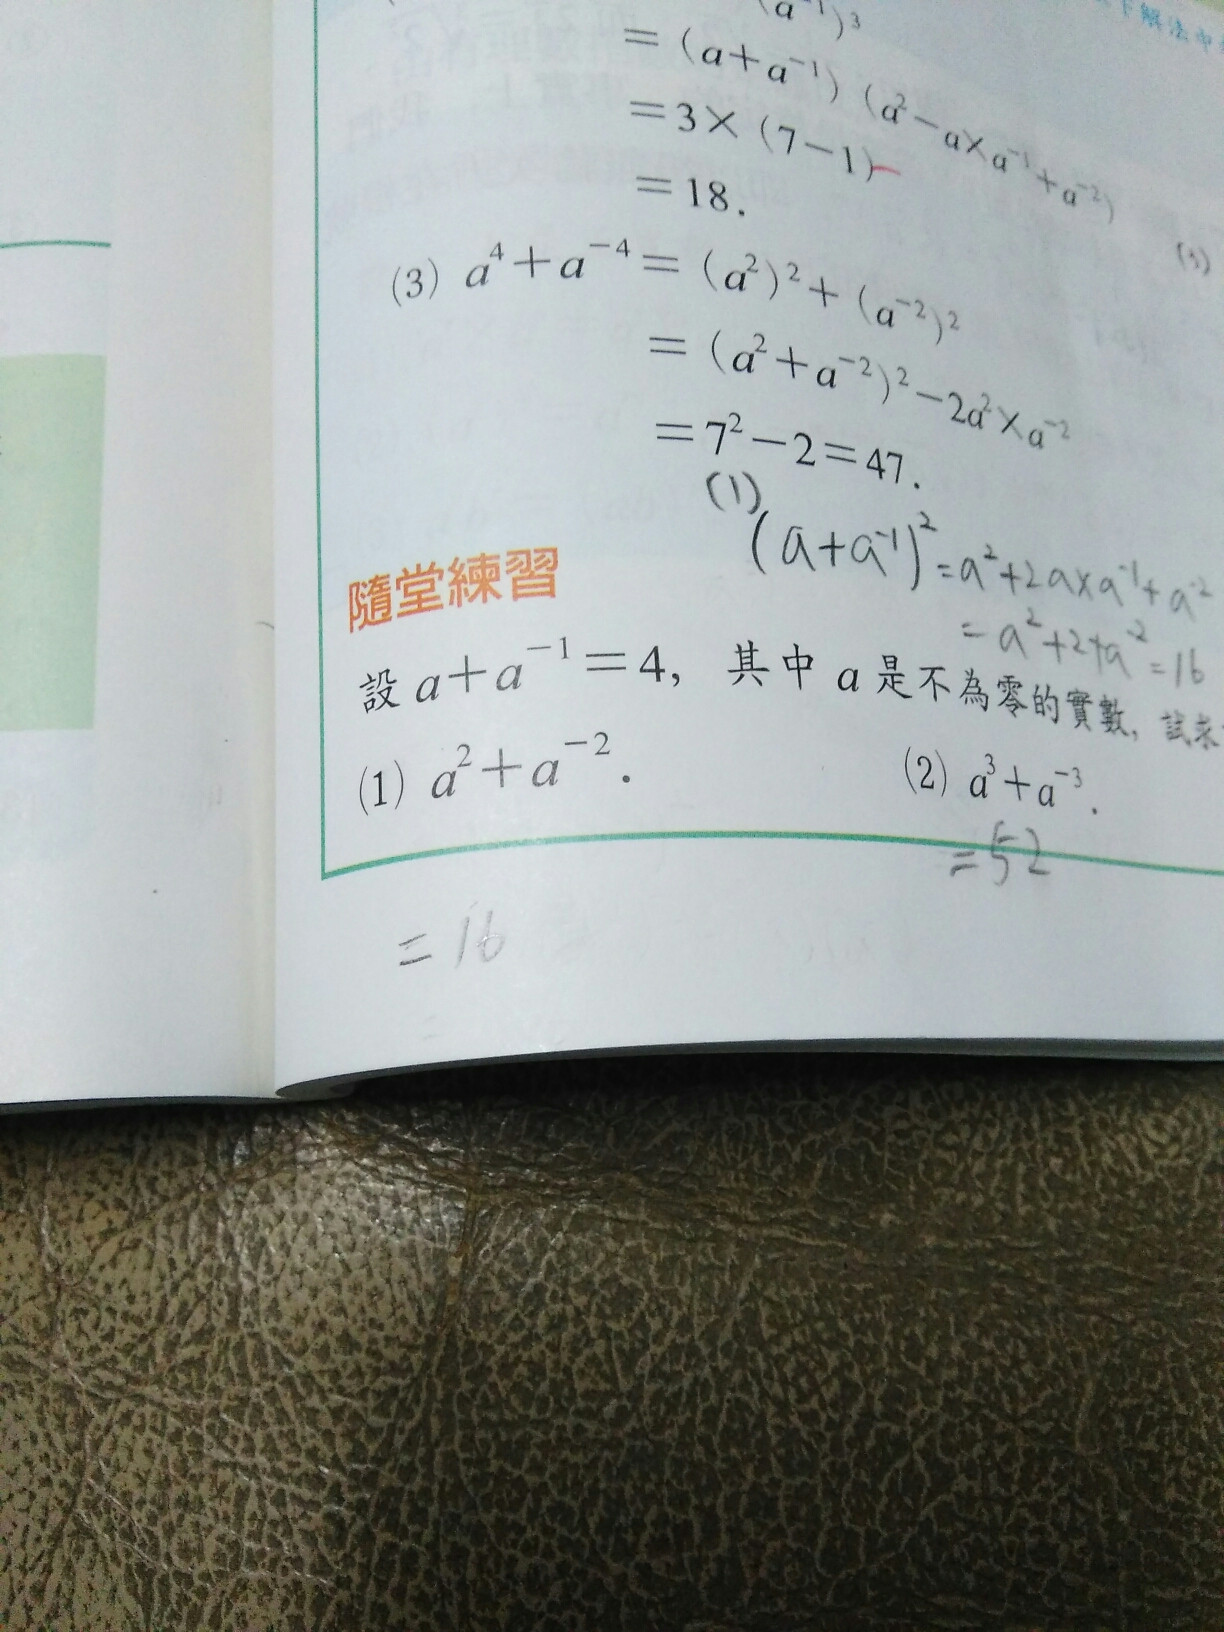 (a⁻¹)³
下解法中
=(a+a⁻¹)(a²-a×a⁻¹+a⁻²)
=3×(7-1)
=18.
(3) a⁴+a⁻⁴=(a²)²+(a⁻²)²
=(a²+a⁻²)²-2a²×a⁻²
=7²-2=47.
(1)
(a+a⁻¹)²=a²+2a×a⁻¹+a⁻²
=a²+2+a⁻²=16
隨堂練習
設a+a⁻¹=4, 其中a是不為零的實數, 試求
(1) a²+a⁻². (2) a³+a⁻³.
=52
=16